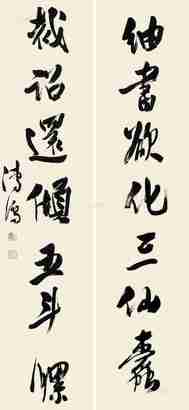 紬書欲化三仙蠹
裁詔還傾五斗螺
溥儒